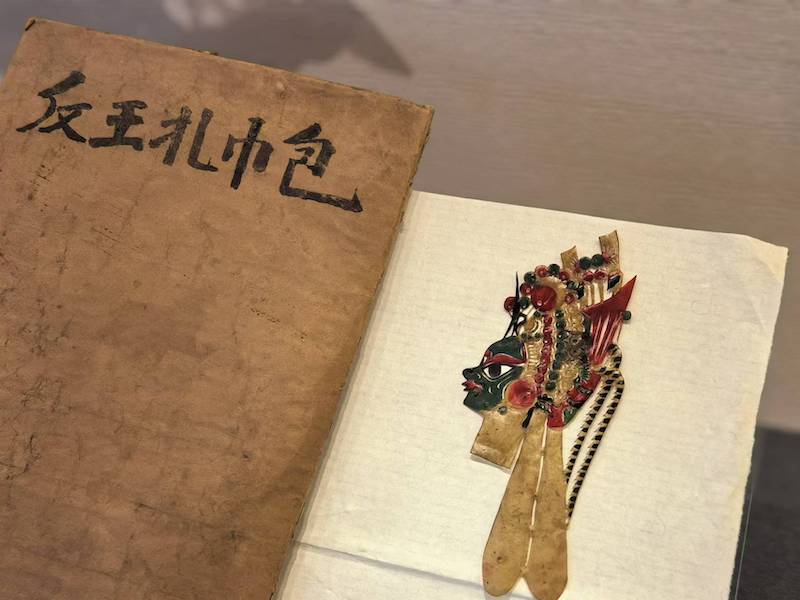 反王扎巾包